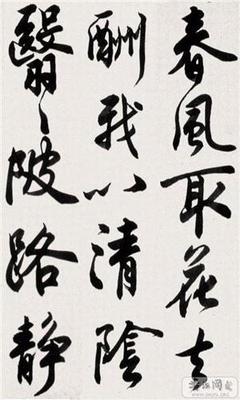 春風取花去
酬我以清陰
翳〻陂路靜